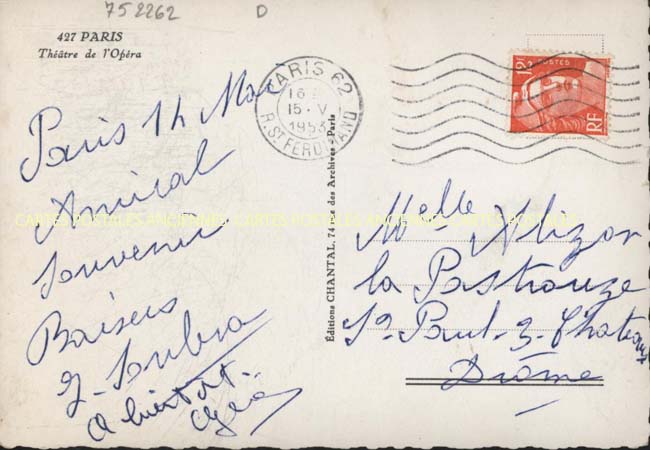 752262 D
427 PARIS
Théâtre de l'Opéra
PARIS 62
15 · V
1953
R. ST FERDINAND
12F
POSTES
RF
Paris 14 Mai
Amical
Souvenir
Baisers
A bientôt
Editions CHANTAL, 74 rue des Archives - Paris
CARTES POSTALES ANCIENNES CARTES POSTALES ANCIENNES CARTES POSTALES ANCIENNES
Melle Alizon
la
St Paul-3-Chateaux
Drôme